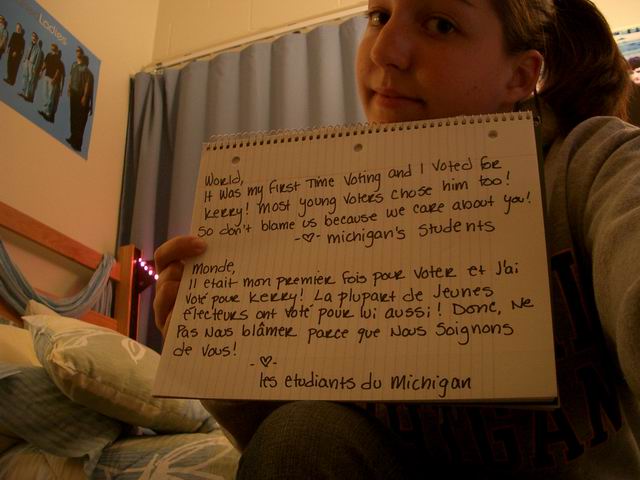 Ladies
World,
It was my first time voting and I voted for
Kerry! Most young voters chose him too!
So don't blame us because we care about you!
-♡- Michigan's students
Monde,
Il etait mon premier fois pour voter et J'ai
voté pour Kerry! La plupart de Jeunes
électeurs ont voté pour lui aussi! Donc, Ne
Pas Nous blâmer parce que Nous Soignons
de vous!
-♡-
les etudiants du Michigan